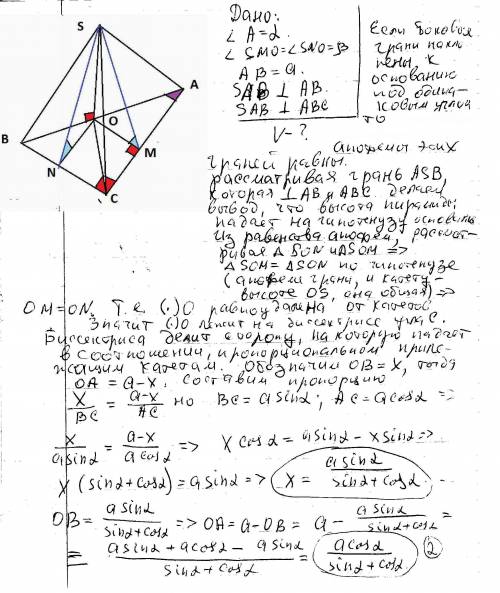 S
A
B
O
N
M
C
Дано:
∠ A=α.
∠ SMO=∠SNO=β
AB=a.
SAB ⊥ ABC
V-?
Если боковые
грани накло
нены к
основанию
под одина-
ковым углом
то
апофемы этих
граней равны.
рассматривая грань ASB,
которая ⊥ AB и ABC. делаем
вывод, что высота пирамиды
падает на гипотенузу основания
из равенства апофем, рассмат-
ривая △ SON и △SOM =>
△ SOM = △SON по гипотенузе
(апофеме грани, и катету-
высоте OS, она общая) =>
OM=ON. Т.е (·)O равноудалена от катетов
Значит (·)O лежит на биссектрисе угла С.
Биссектриса делит сторону, на которую падает
в соотношении, пропорциональном приле-
жащим катетам. Обозначим OB=X, тогда
OA = a-x. составим пропорцию
X/BC = a-x/AC но BC=a sinα; AC=a cosα =>
x/a sinα = a-x/a cosα => X cosα = a sinα - x sinα =>
X (sinα+cosα)=a sinα => X = a sinα/sinα+cosα.
OB = a sinα/sinα+cosα => OA=a-OB = a - a sinα/sinα+cosα =
= a sinα + a cosα - a sinα/sinα + cosα = a cosα/sinα+cosα 2